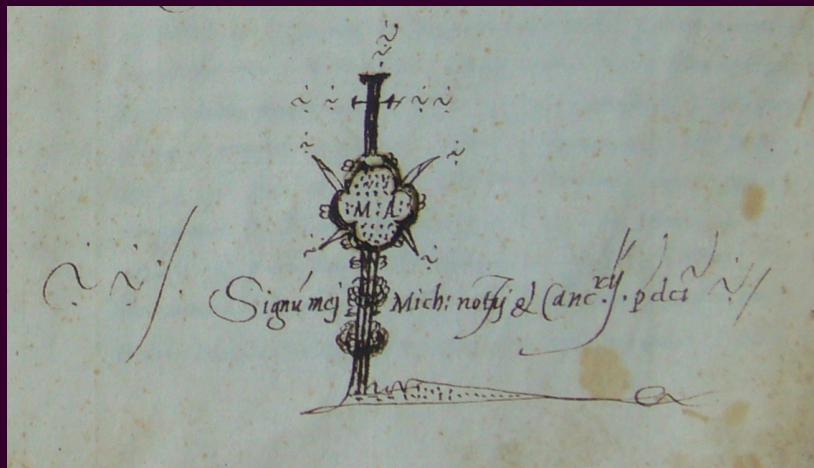 M · A ·
Signũ mej Mich: notȷ̃j & Canc.rij. p̃dcĩ